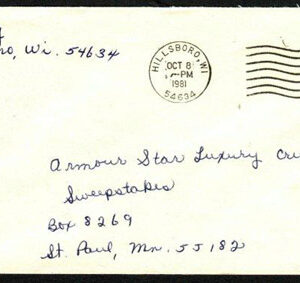 ro, Wi. 54634
HILLSBORO, WI
OCT 8
PM
1981
54634
Armour Star Luxury Cru
Sweepstakes
Box 8269
St. Paul, Mn. 55182